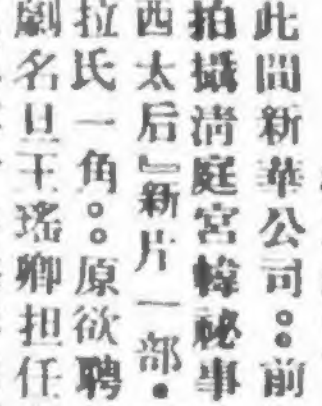 此間新華公司。。前
拍攝清庭宮幃祕事
西太后』新片一部・
拉氏一角。。原欲聘
劇名旦王瑤卿担任